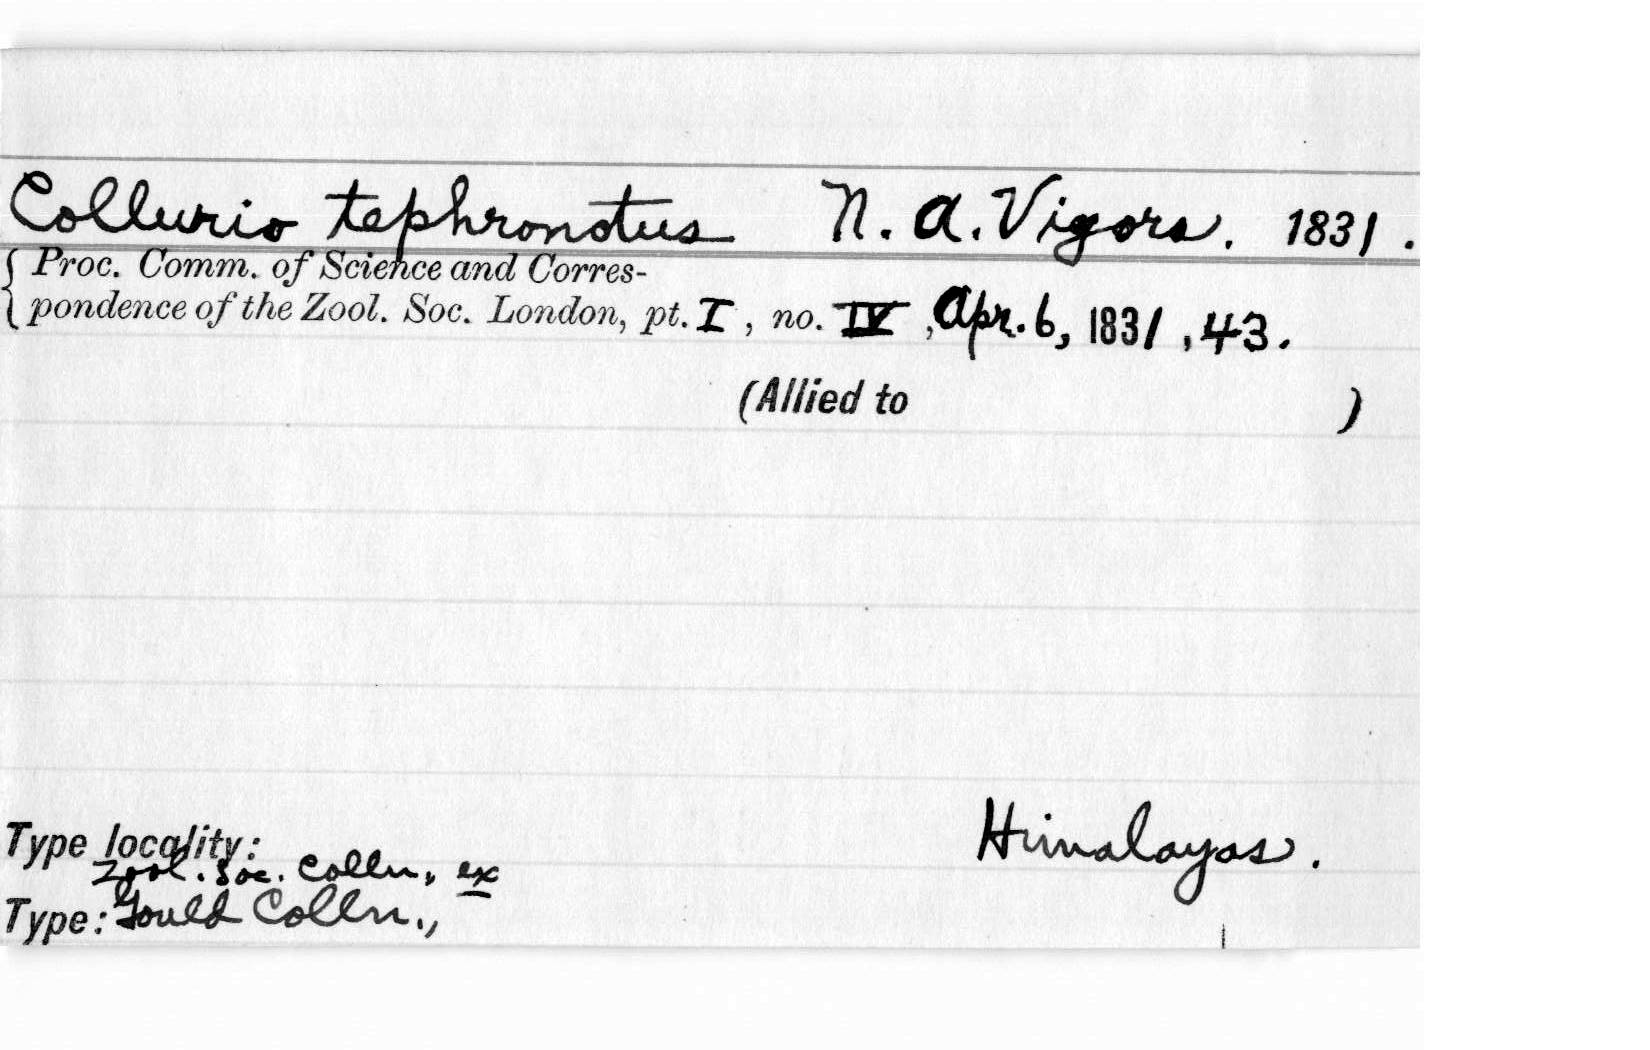 Collurio tephronotus N. A. Vigors. 1831.
Proc. Comm. of Science and Corres-
pondence of the Zool. Soc. London, pt. I, no. IV, Apr. 6, 1831, 43.
(Allied to )
Type locality: Himalayas.
Zool. Soc. Colln., ex
Type: Gould Colln.,